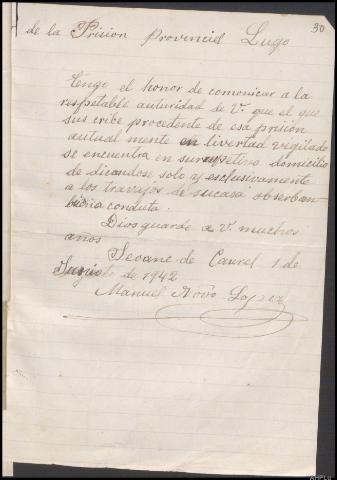 30
de la Prision Provinciel Lugo
Tengo el honor de comunicar a la
respetable auturidad de V. que el que
sus cribe procedente de esa prision
autual mente en livertad vigilada
se encuentra en su respetivo domicilio
de dicandose solo y esclusivamente
a los travajos de sucasa obserban
buena conducta.
Dios guarde a V. muchos
años
Seoane de Caurel 1 de
de 1942
Manuel Novo Lopez
AHPLU